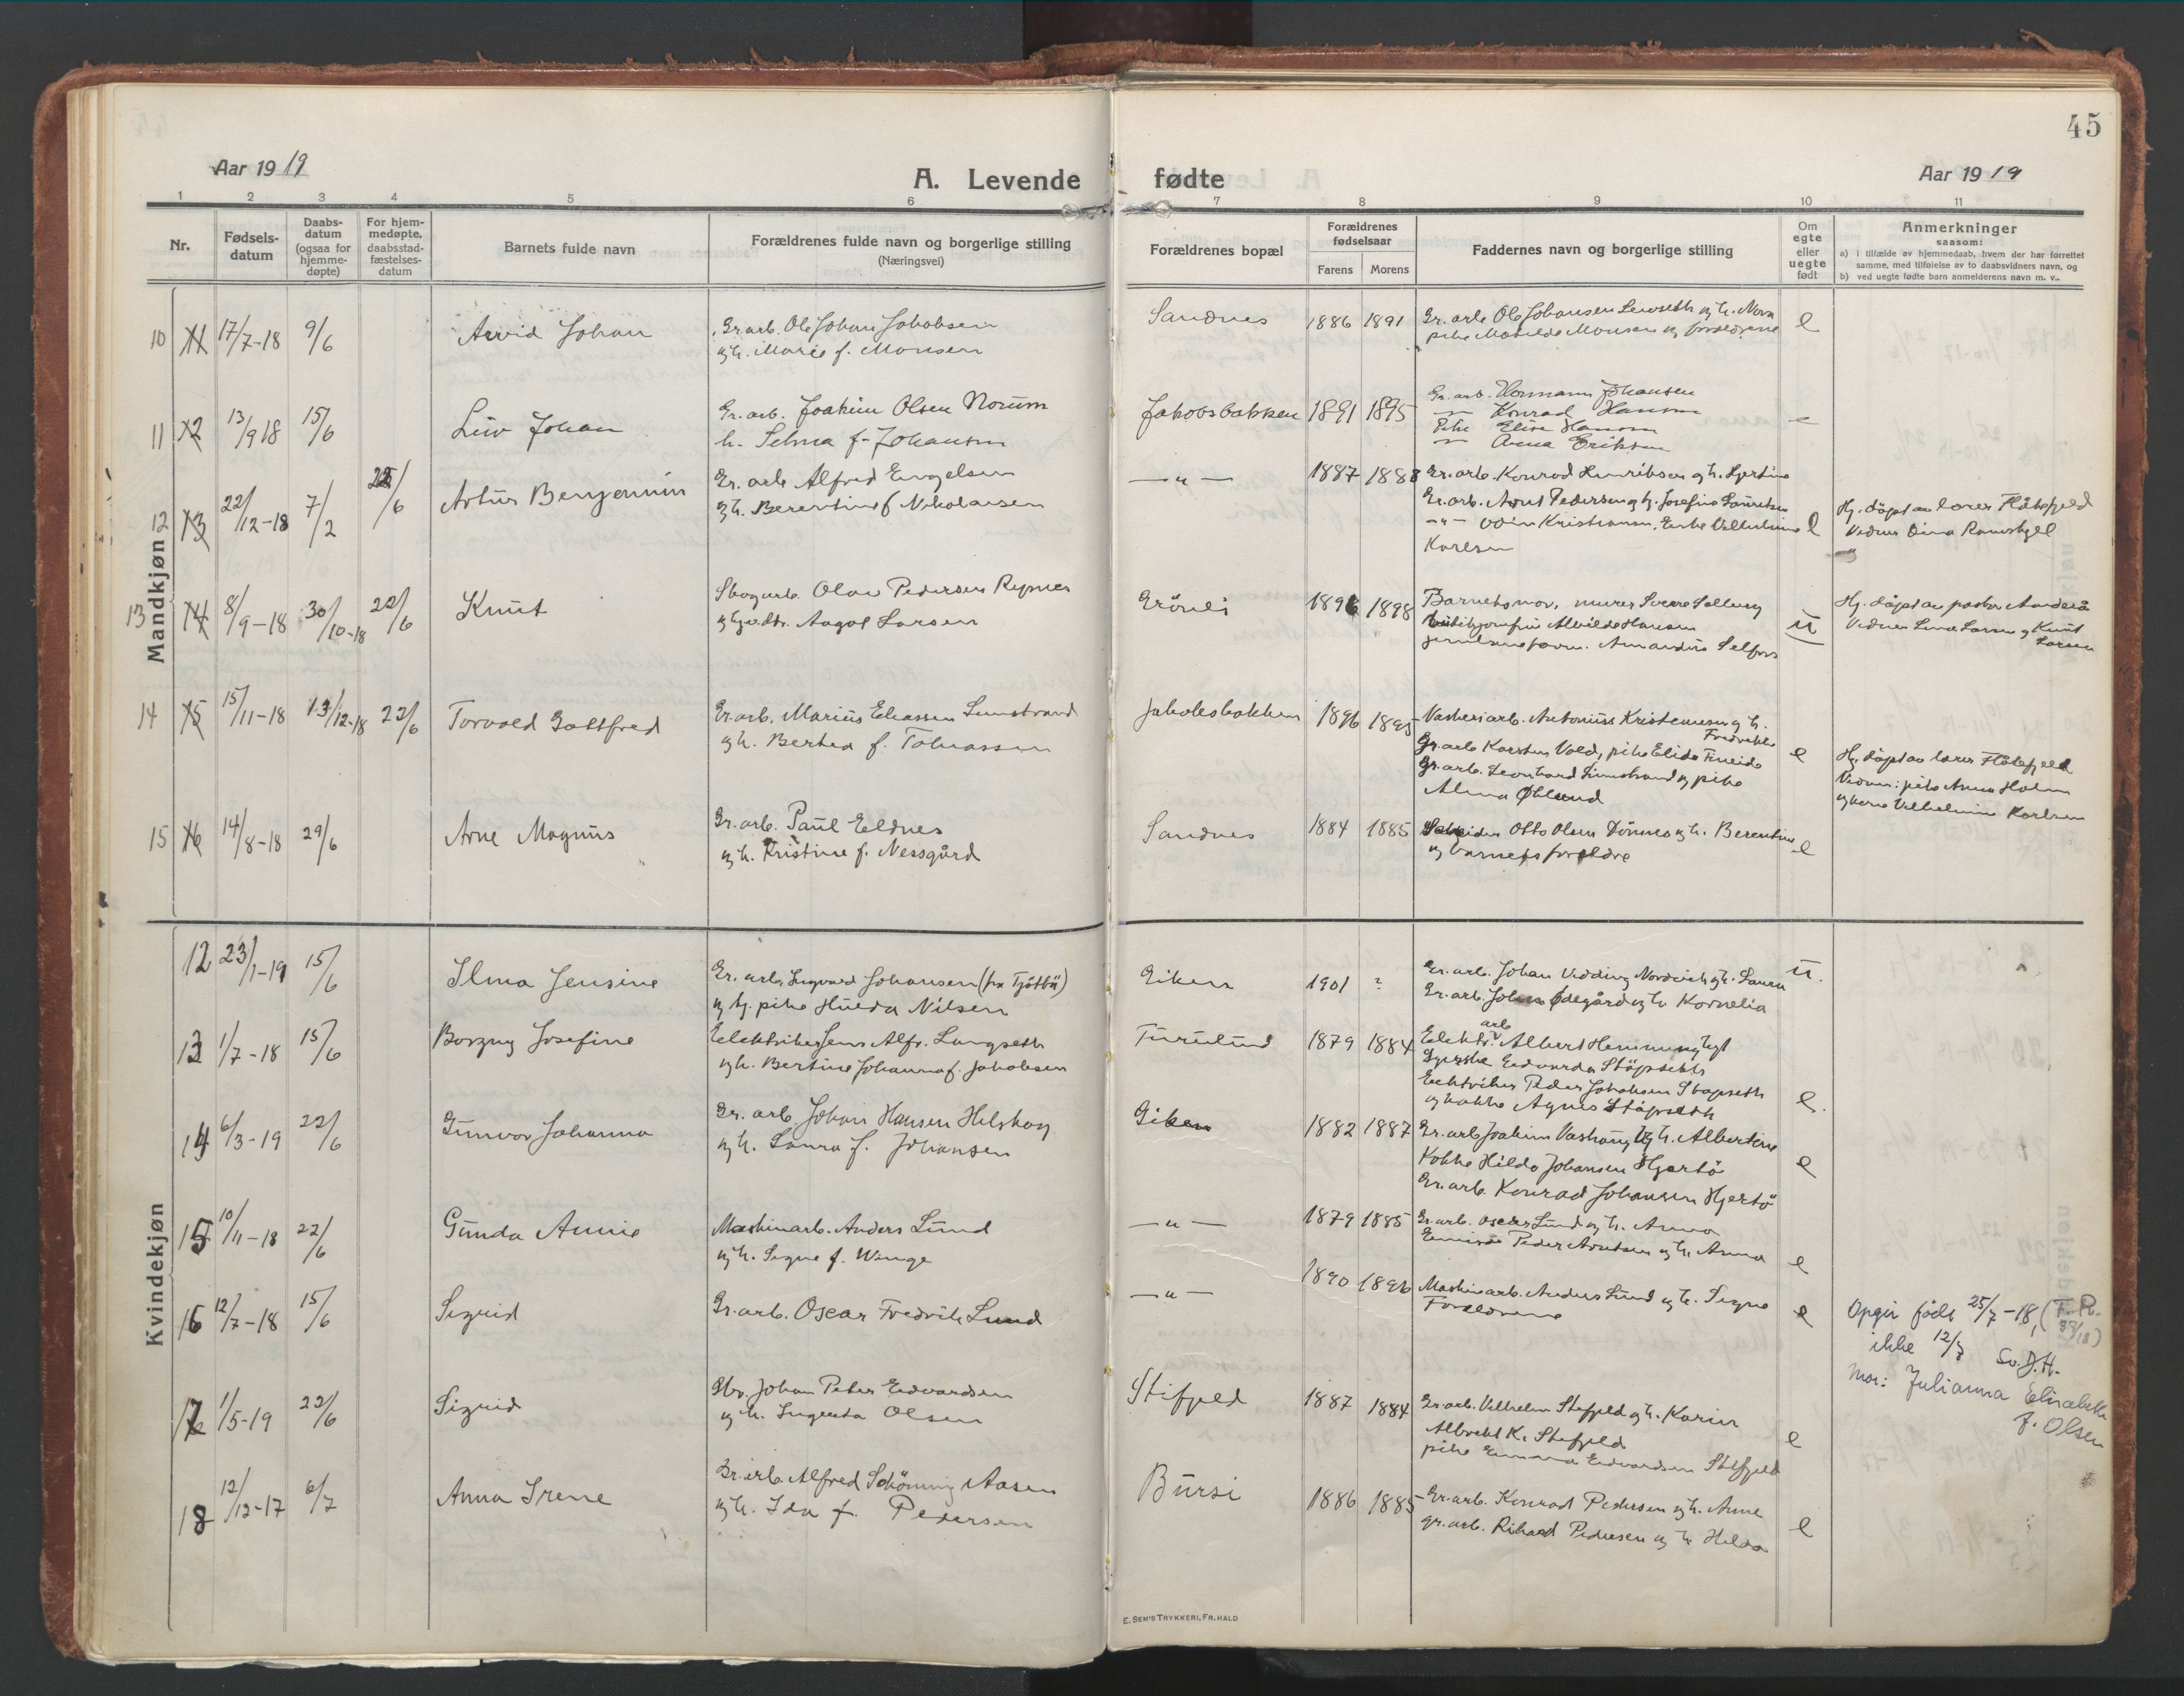 45
Aar 1919
A. Levende fødte
Aar 1919
1 2 3 4 5 6 7 8 9 10 11
Nr.
Fødsels-
datum
Daabs-
datum
(ogsaa for
hjemme-
døpte)
For hjem-
medøpte,
daabsstad-
fæstelses-
datum
Barnets fulde navn
Forældrenes fulde navn og borgerlige stilling
(Næringsvei)
Forældrenes bopæl
Forældrenes
fødselsaar
Farens Morens
Faddernes navn og borgerlige stilling
Om
egte
eller
uegte
født
Anmerkninger
saasom:
a) i tilfælde av hjemmedaab, hvem der har forrettet
samme, med tilføielse av to daabsvidners navn, og
b) ved uegte fødte barn anmelderens navn m. v.
Mandkjøn
10 11 17/7-18 9/6 Arvid Johan
Gr.arb. Ole Johan Jakobsen
og h. Marie f. Monsen
Sandnes 1886 1891
Gr. arb. Ole Johansen og h. Nora
pike Matilde Monsen og forældrene
e
11 12 13/9 18 15/6 Liv Johan
Gr. arb. Joakim Olsen Norum
h. Selma f. Johansen
Jakobsbakken 1891 1895
Gr. arb. Hermann Johansen
-"- Konrad Hansen
Pike Elise Hansen
-"- Anna Eriksen
e
12 13 22/12-18 7/2 22/6 Artur Benjamin
Gr. arb Alfred Engelsen
og h. Berentine f Nikolaisen
-"- 1887 1888
Gr. arb. Konrad Henriksen og h. Hjertine
Gr. arb. Arnt Pedersen og h. Josefine Lauritsen
-"- Odin Kristiansen, Enke Vilhelmine
Karlsen
e
Hj. döpt av lærer Flåtefjeld
Vidner Dina
13 14 8/9-18 30/10-18 22/6 Knut
Skogarb. Olav Pedersen
Aagot Larsen
Grönli 1896 1898
Barnets mor, murer Sverre Solberg
Alvilde Hansen
Amandus Selfors
u
Hj. döpt av pastor
Vidner Lina Larsen og Knut
Larsen
14 15 15/11-18 13/12-18 22/6 Torvald Gottfred
Gr.arb. Marius Eliassen Lunstrand
og h. Berthea f. Tobiassen
Jakobsbakken 1896 1895
Vaskeriarb. Antonius Kristensen og h.
Fredrikke
Gr. arb Karsten Vold, pike Elida Fineide
gr. arb. Leonhard Lunstrand og pike
Alma Øklund
e
Hj. döpt av lærer Flåtefjeld
Vidner: pike Anna Holm
og kone Vilhelmine Karlsen
15 16 14/8-18 29/6 Arne Magnus
Gr. arb. Paul Eldnes
og h. Kristine f. Nessgård
Sandnes 1884 1885
Otto Olsen Dönnes og h. Berentine
og barnets forældre
e
Kvindekjøn
12 23/1-19 15/6 Ilma Jensine
Gr. arb. Ingvard Johansen (fra Tjötta)
og tj. pike Hulda Nilsen
Giken 1901 ?
Gr. arb. Johan Vedding Nordvik og h. Laura
Gr. arb. Johan Ødegård og h. Kornelia
u.
13 1/7-18 15/6 Borgny Josefine
Elektriker Jens Alfr. Langseth
og h. Bertine Johanna f. Jakobsen
Furulund 1879 1884
Elektr. arb Albert Hemming
Eedvarda Støpseth
Elektriker Peder Jakobsen Støpseth
og kokke Agnes Støpseth
e.
14 6/3-19 22/6 Gunvor Johanna
Gr. arb. Johan Hansen Helskog
og h. Laura f. Johansen
Giken 1882 1887
Gr. arb Joakim Vashaug og h. Albertine
Kokke Hilda Johansen Hjertö
Gr. arb. Konrad Johansen Hjertö
e
15 10/11-18 22/6 Gunda Annie
Maskinarb. Anders Lund
og h. Signe f. Winge
-"- 1879 1885
Gr. arb. Oscar Lund og h. Anna
Peder Arntsen og h. Anna
e
16 12/7-18 15/6 Sigrid
Gr. arb. Oscar Fredrik Lund
-"- 1890 1896
Maskinarb. Anders Lund og h. Signe
Forældrene
e
Opgir født 25/7-18, (F. R.
33/18)
ikke 12/7 Sv. D.H.
Mor: Julianna Elisabeth
f. Olsen
17 1/5-19 22/6 Sigrid
Gbr. Johan Peter Eedvardsen
og h. Ingerta Olsen
Stifjeld 1887 1884
Gr. arb. Vilhelm Stifjeld og h. Karin
Albrekt K. Stifjeld
pike Emma Eedvardsen Stifjeld
e
18 12/12-17 6/7 Anna Irene
Gr. arb. Alfred Schöning Aasen
og h. Ida f. Pedersen
Bursi 1886 1885
Gr. arb. Konrad Pedersen og h. Anne
gr. arb. Rikard Pedersen og h. Hilda
e
E. SEM'S TRYKKERI, FR. HALD